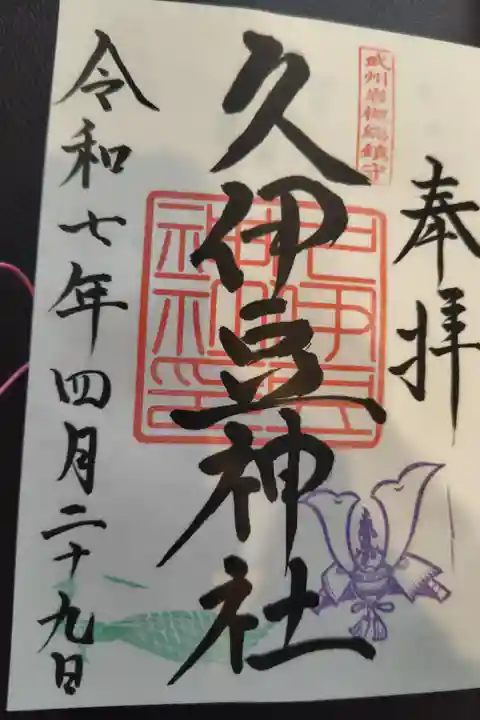 奉拝
武州岩槻総鎮守
久伊豆神社
久伊豆神社印
令和七年四月二十九日